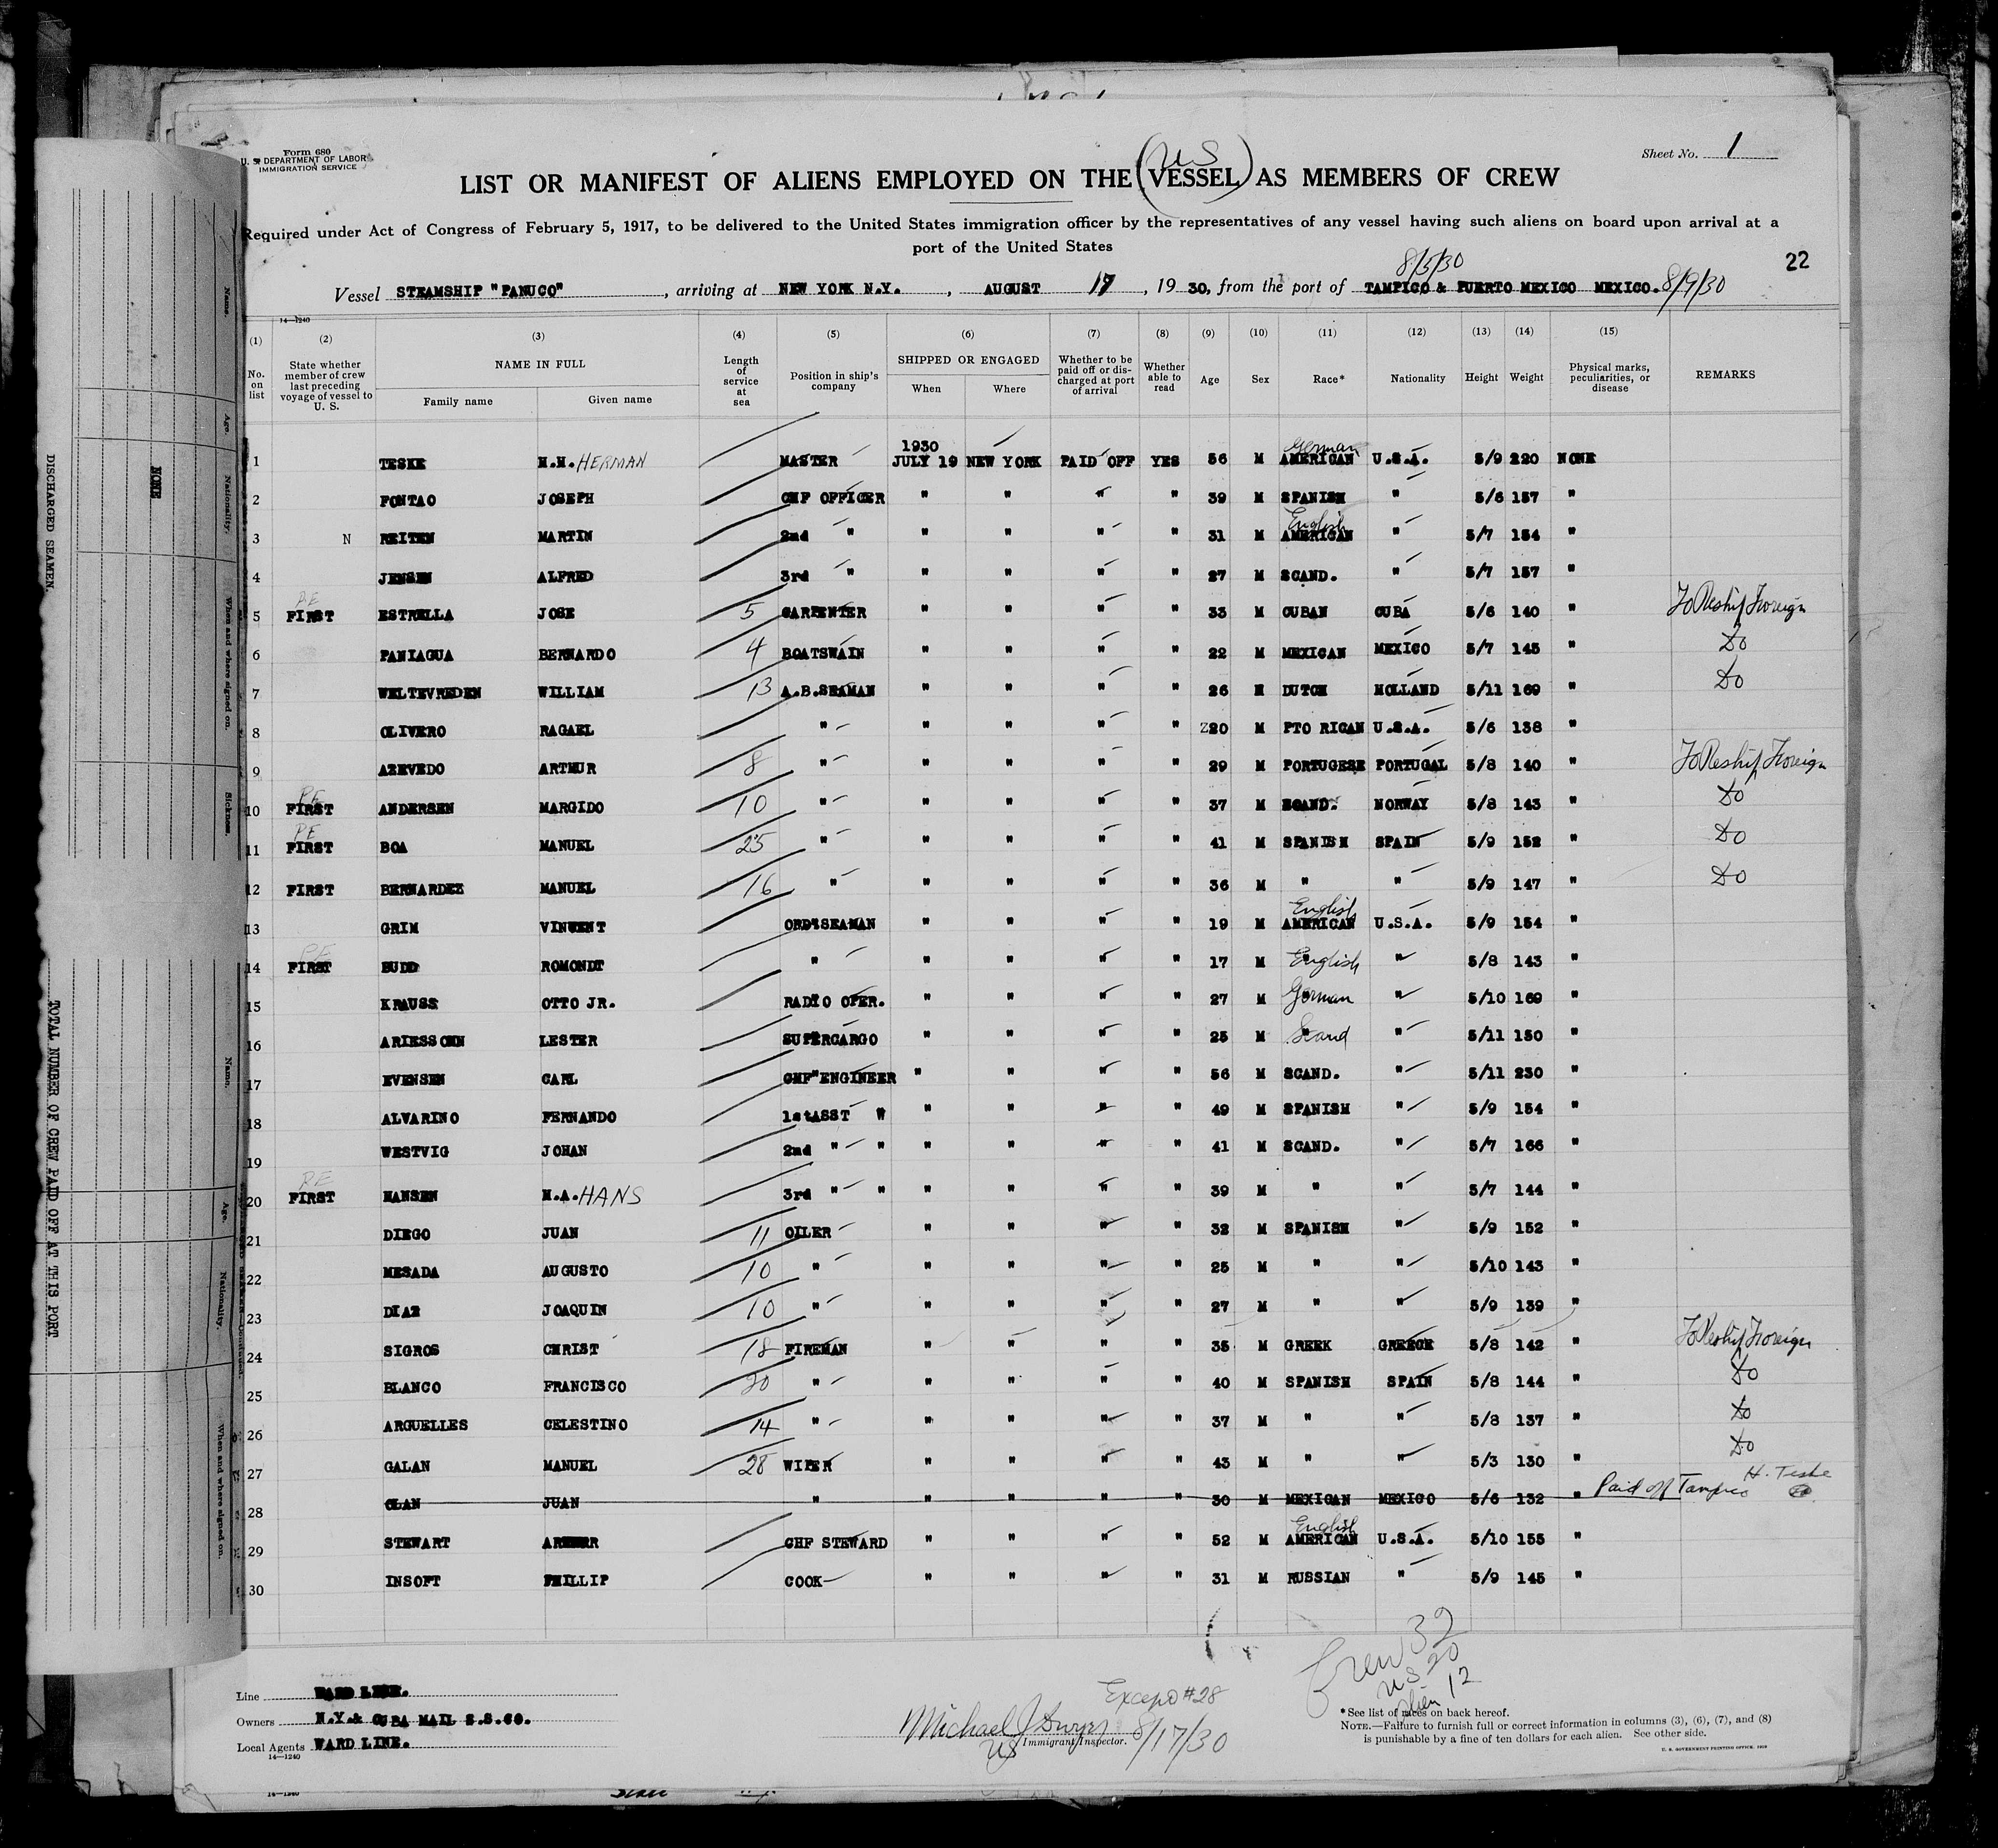 Form 680
U. S. DEPARTMENT OF LABOR
IMMIGRATION SERVICE
Sheet No. 1
US
LIST OR MANIFEST OF ALIENS EMPLOYED ON THE (VESSEL) AS MEMBERS OF CREW
Required under Act of Congress of February 5, 1917, to be delivered to the United States immigration officer by the representatives of any vessel having such aliens on board upon arrival at a
port of the United States
22
8/5/30
Vessel STEAMSHIP "PANUCO", arriving at NEW YORK N.Y., AUGUST 17, 1930, from the port of TAMPICO & PUERTO MEXICO MEXICO. 8/9/30
14—1240
(1) (2) (3) (4) (5) (6) (7) (8) (9) (10) (11) (12) (13) (14) (15)
No. on list
State whether member of crew last preceding voyage of vessel to U. S.
NAME IN FULL
Family name Given name
Length of service at sea
Position in ship's company
SHIPPED OR ENGAGED
When Where
Whether to be paid off or discharged at port of arrival
Whether able to read
Age Sex Race* Nationality Height Weight
Physical marks, peculiarities, or disease
REMARKS
1930 German
1 TESKE H.H. HERMAN MASTER JULY 19 NEW YORK PAID OFF YES 56 M AMERICAN U.S.A. 5/9 220 NONE
2 FONTAO JOSEPH CHF OFFICER " " " " 39 M SPANISH " 5/6 157 "
English
3 N REITEN MARTIN 2nd " " " " " 31 M AMERICAN " 5/7 154 "
4 JENSEN ALFRED 3rd " " " " " 27 M SCAND. " 5/7 157 "
PE
5 FIRST ESTRELLA JOSE 5 CARPENTER " " " " 33 M CUBAN CUBA 5/6 140 " To Reship Foreign
6 PANIAGUA BERNARDO 4 BOATSWAIN " " " " 22 M MEXICAN MEXICO 5/7 145 " Do
7 WELTEVREDEN WILLIAM 13 A.B.SEAMAN " " " " 26 M DUTCH HOLLAND 5/11 169 " Do
8 OLIVERO RAGAEL " " " " " 20 M PTO RICAN U.S.A. 5/6 138 "
9 AZEVEDO ARTHUR 8 " " " " " 29 M PORTUGESE PORTUGAL 5/8 140 " To Reship Foreign
PE
10 FIRST ANDERSEN MARGIDO 10 " " " " " 37 M SCAND. NORWAY 5/8 143 " Do
PE
11 FIRST BOA MANUEL 25 " " " " " 41 M SPANISH SPAIN 5/9 152 " Do
12 FIRST BERNARDEZ MANUEL 16 " " " " " 36 M " " 5/9 147 " Do
English
13 GRIM VINCENT ORD"SEAMAN " " " " 19 M AMERICAN U.S.A. 5/9 154 "
PE
14 FIRST BUDD ROMONDT " " " " " 17 M English " 5/8 143 "
15 KRAUSS OTTO JR. RADIO OPER. " " " " 27 M German " 5/10 169 "
16 ARIESSOHN LESTER SUPERCARGO " " " " 25 M Scand " 5/11 150 "
17 EVENSEN CARL CHF"ENGINEER " " " " 56 M SCAND. " 5/11 230 "
18 ALVARINO FERNANDO 1stASST " " " " " 49 M SPANISH " 5/9 154 "
19 WESTVIG JOHAN 2nd " " " " " " 41 M SCAND. " 5/7 166 "
PE
20 FIRST HANSEN H.A. HANS 3rd " " " " " " 39 M " " 5/7 144 "
21 DIEGO JUAN 11 OILER " " " " 32 M SPANISH " 5/9 152 "
22 MESADA AUGUSTO 10 " " " " " 25 M " " 5/10 143 "
23 DIAZ JOAQUIN 10 " " " " " 27 M " " 5/9 139 "
24 SIGROS CHRIST 18 FIREMAN " " " " 35 M GREEK GREECE 5/8 142 " To Reship Foreign
25 BLANCO FRANCISCO 20 " " " " " 40 M SPANISH SPAIN 5/8 144 " Do
26 ARGUELLES CELESTINO 14 " " " " " 37 M " " 5/8 137 " Do
27 GALAN MANUEL 28 WIPER " " " " 43 M " " 5/3 130 " Do
28 OLAN JUAN " " " " " 30 M MEXICAN MEXICO 5/6 132 " Paid off Tampico H. Teske
English
29 STEWART ARTHUR CHF STEWARD " " " " 52 M AMERICAN U.S.A. 5/10 155 "
30 INSOFT PHILLIP COOK " " " " 31 M RUSSIAN " 5/9 145 "
Crew 32
US 20
Alien 12
Line WARD LINE.
Owners N.Y.& CUBA MAIL S.S.CO.
Local Agents WARD LINE.
14—1240
Except #28
Michael J Dwyer 8/17/30
US Immigrant Inspector.
*See list of races on back hereof.
NOTE.—Failure to furnish full or correct information in columns (3), (6), (7), and (8)
is punishable by a fine of ten dollars for each alien. See other side.
U. S. GOVERNMENT PRINTING OFFICE
DISCHARGED SEAMEN.
NONE
TOTAL NUMBER OF CREW PAID OFF AT THIS PORT
Name.
Age.
Nationality.
When and where signed on.
Sickness.
Name.
Age.
Nationality.
When and where signed on.